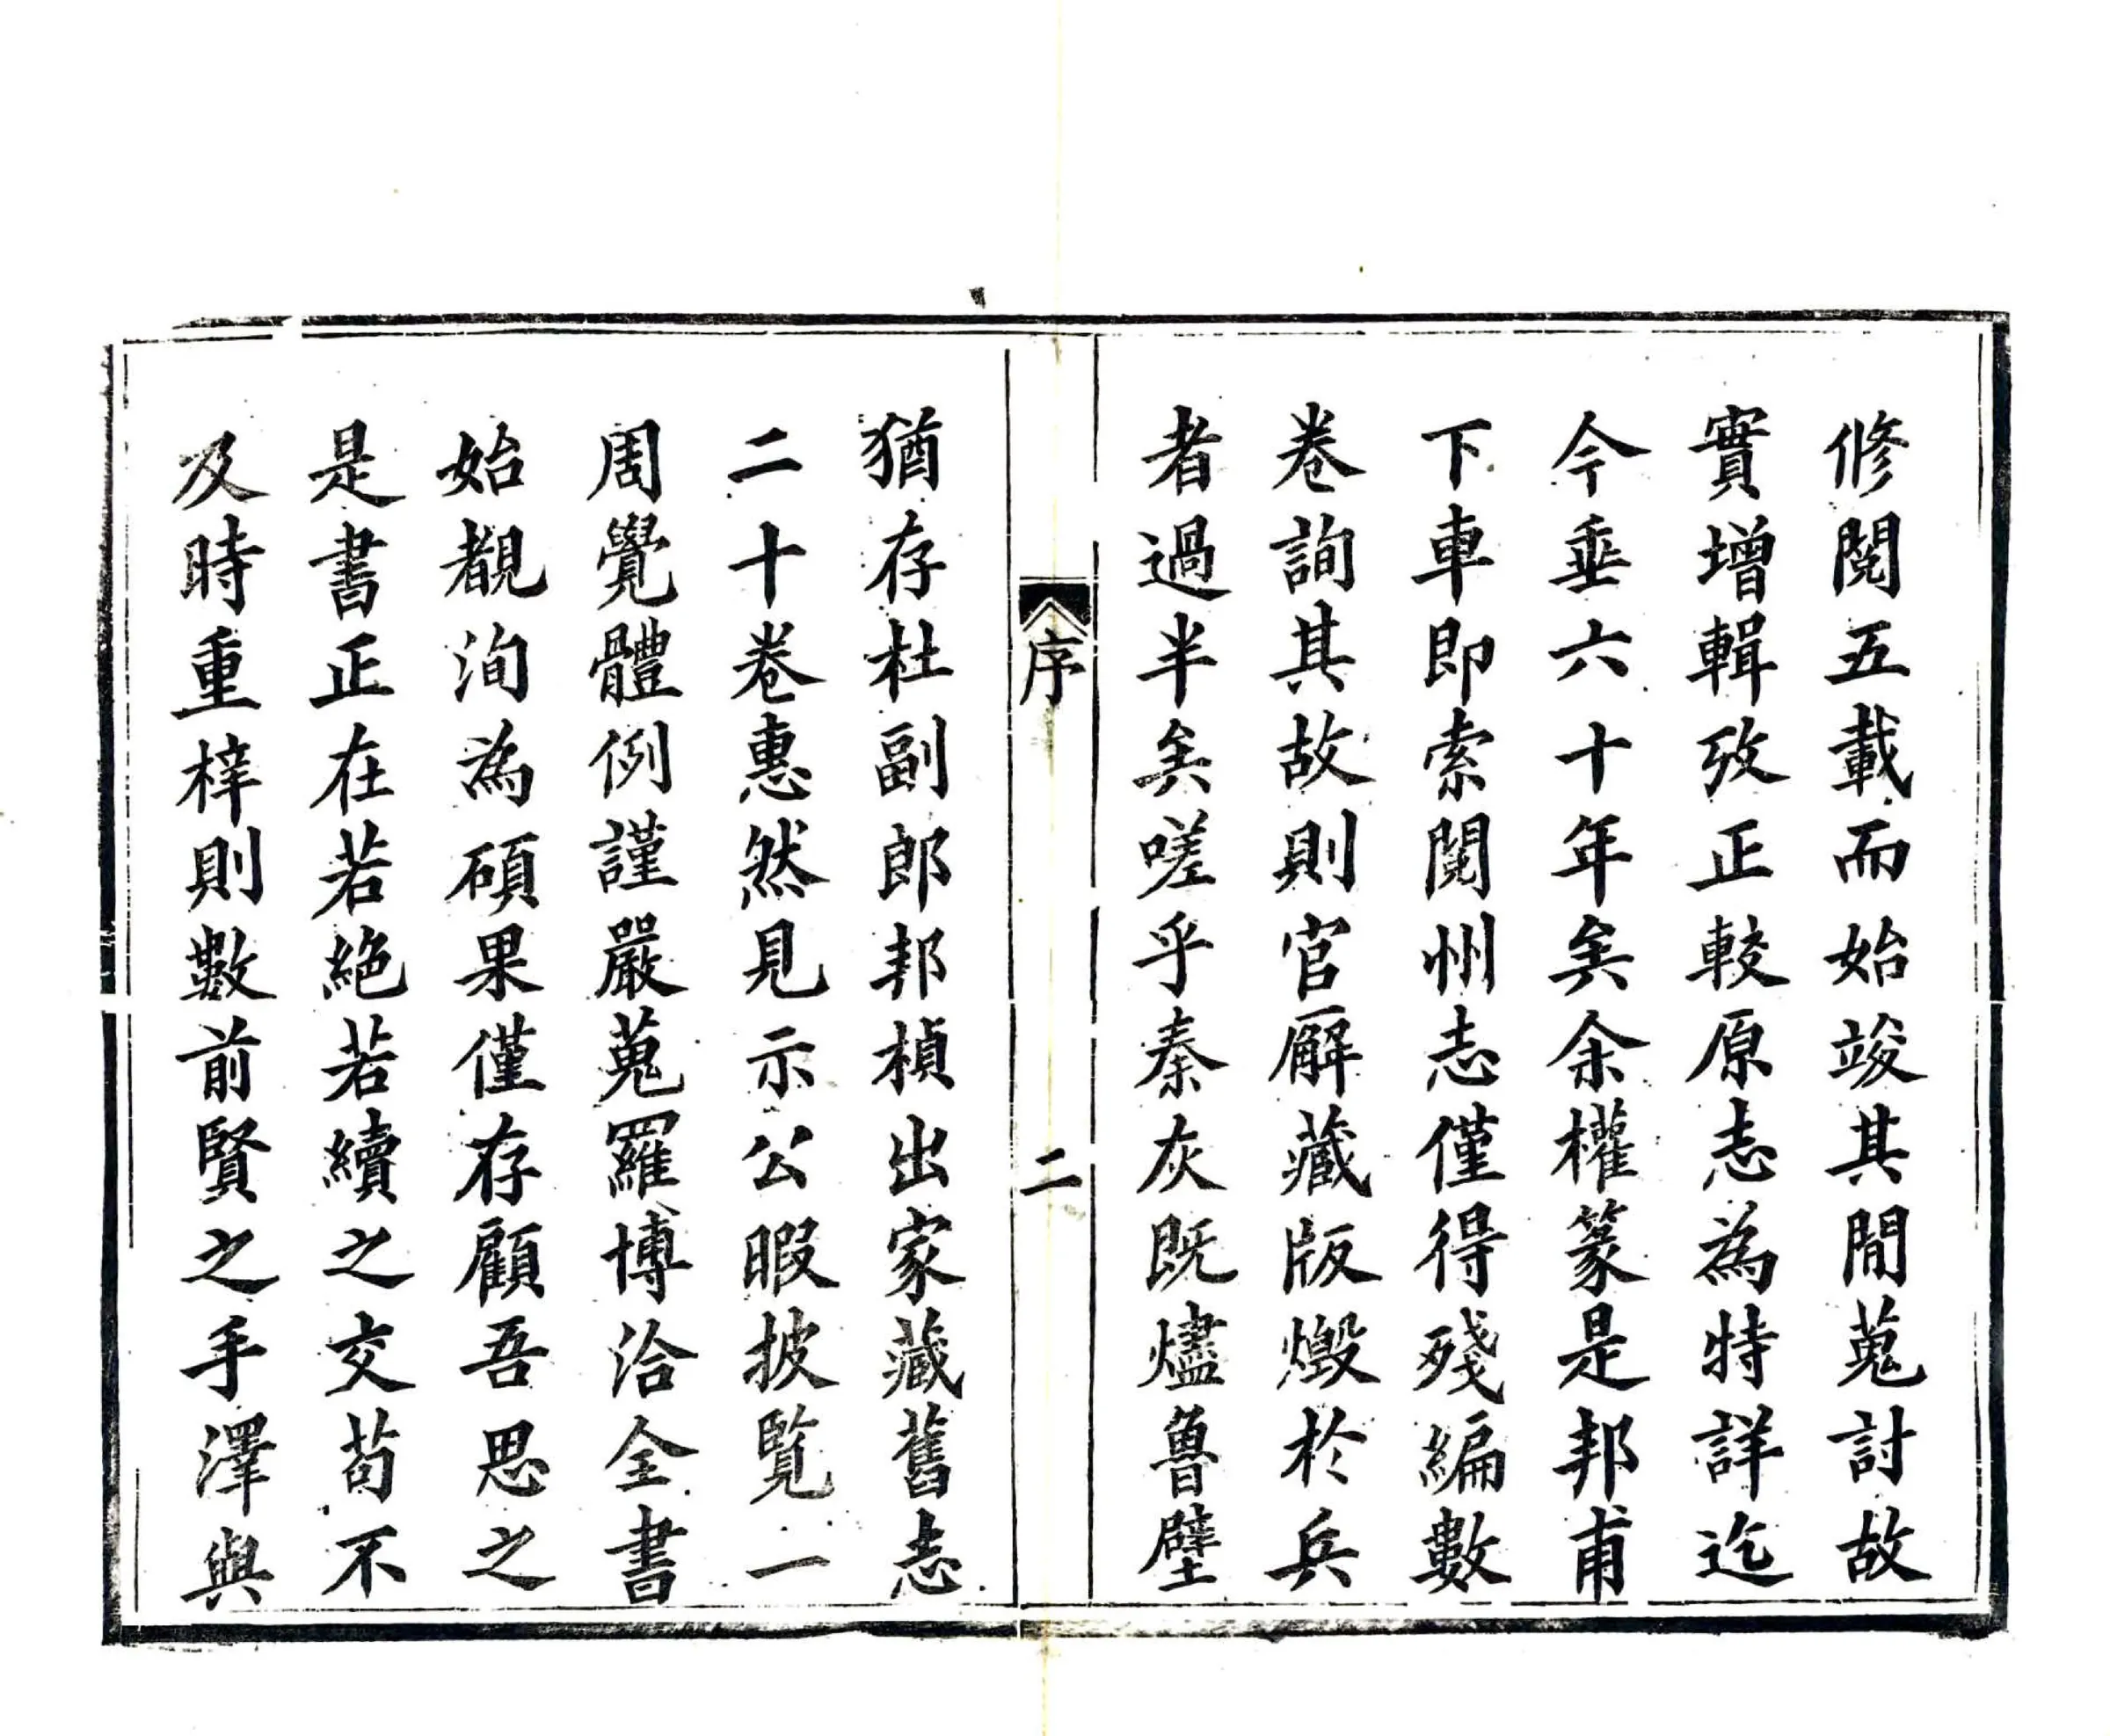 修閱五載而始竣其間蒐討故
實增輯攷正較原志為特詳迄
今垂六十年矣余權篆是邦甫
下車即索閱州志僅得殘編數
卷詢其故則官廨藏版燬於兵
者過半矣嗟乎秦灰既燼魯壁
序
二
猶存杜副郎邦楨出家藏舊志
二十卷惠然見示公暇披覧一
周覺體例謹嚴蒐羅博洽全書
始覩洵為碩果僅存顧吾思之
是書正在若絕若續之交苟不
及時重梓則數前賢之手澤與